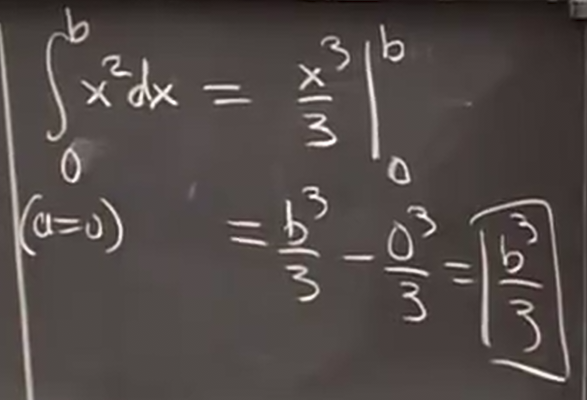 ∫₀ᵇ x²dx = x³/3 |₀ᵇ
(a=0) = b³/3 − 0³/3 = b³/3